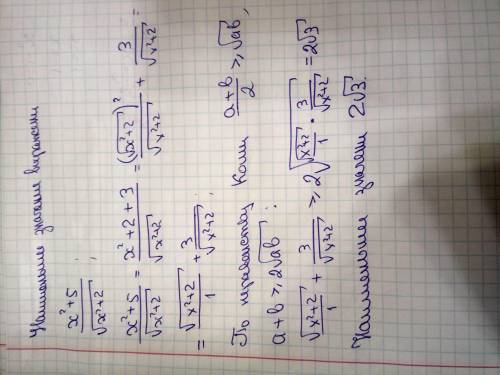 Наименьшее значение выражения
\frac{x²+5}{\sqrt{x²+2}} ;
\frac{x²+5}{\sqrt{x²+2}} = \frac{x²+2+3}{\sqrt{x²+2}} = \frac{(\sqrt{x²+2})²}{\sqrt{x²+2}} + \frac{3}{\sqrt{x²+2}} =
= \frac{\sqrt{x²+2}}{1} + \frac{3}{\sqrt{x²+2}} ;
По неравенству Коши \frac{a+b}{2} ⩾ \sqrt{ab},
a+b ⩾ 2\sqrt{ab} :
\frac{\sqrt{x²+2}}{1} + \frac{3}{\sqrt{x²+2}} ⩾ 2\sqrt{\frac{\sqrt{x²+2}}{1} · \frac{3}{\sqrt{x²+2}}} = 2\sqrt{3}
Наименьшее значение 2\sqrt{3}.